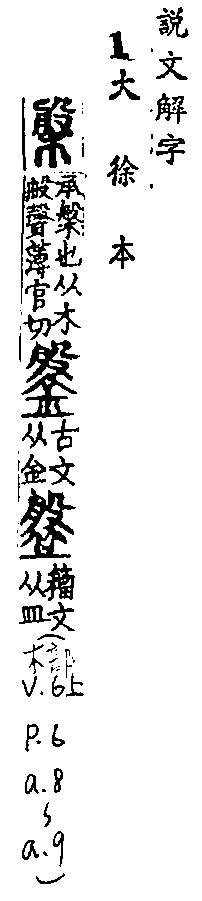 説文解字
1大徐本
槃 承槃也从木
般聲薄官切 鎜 古文
从金 盤 籀文
从皿(木部
V.6上
P.6
a.8
~
a.9)